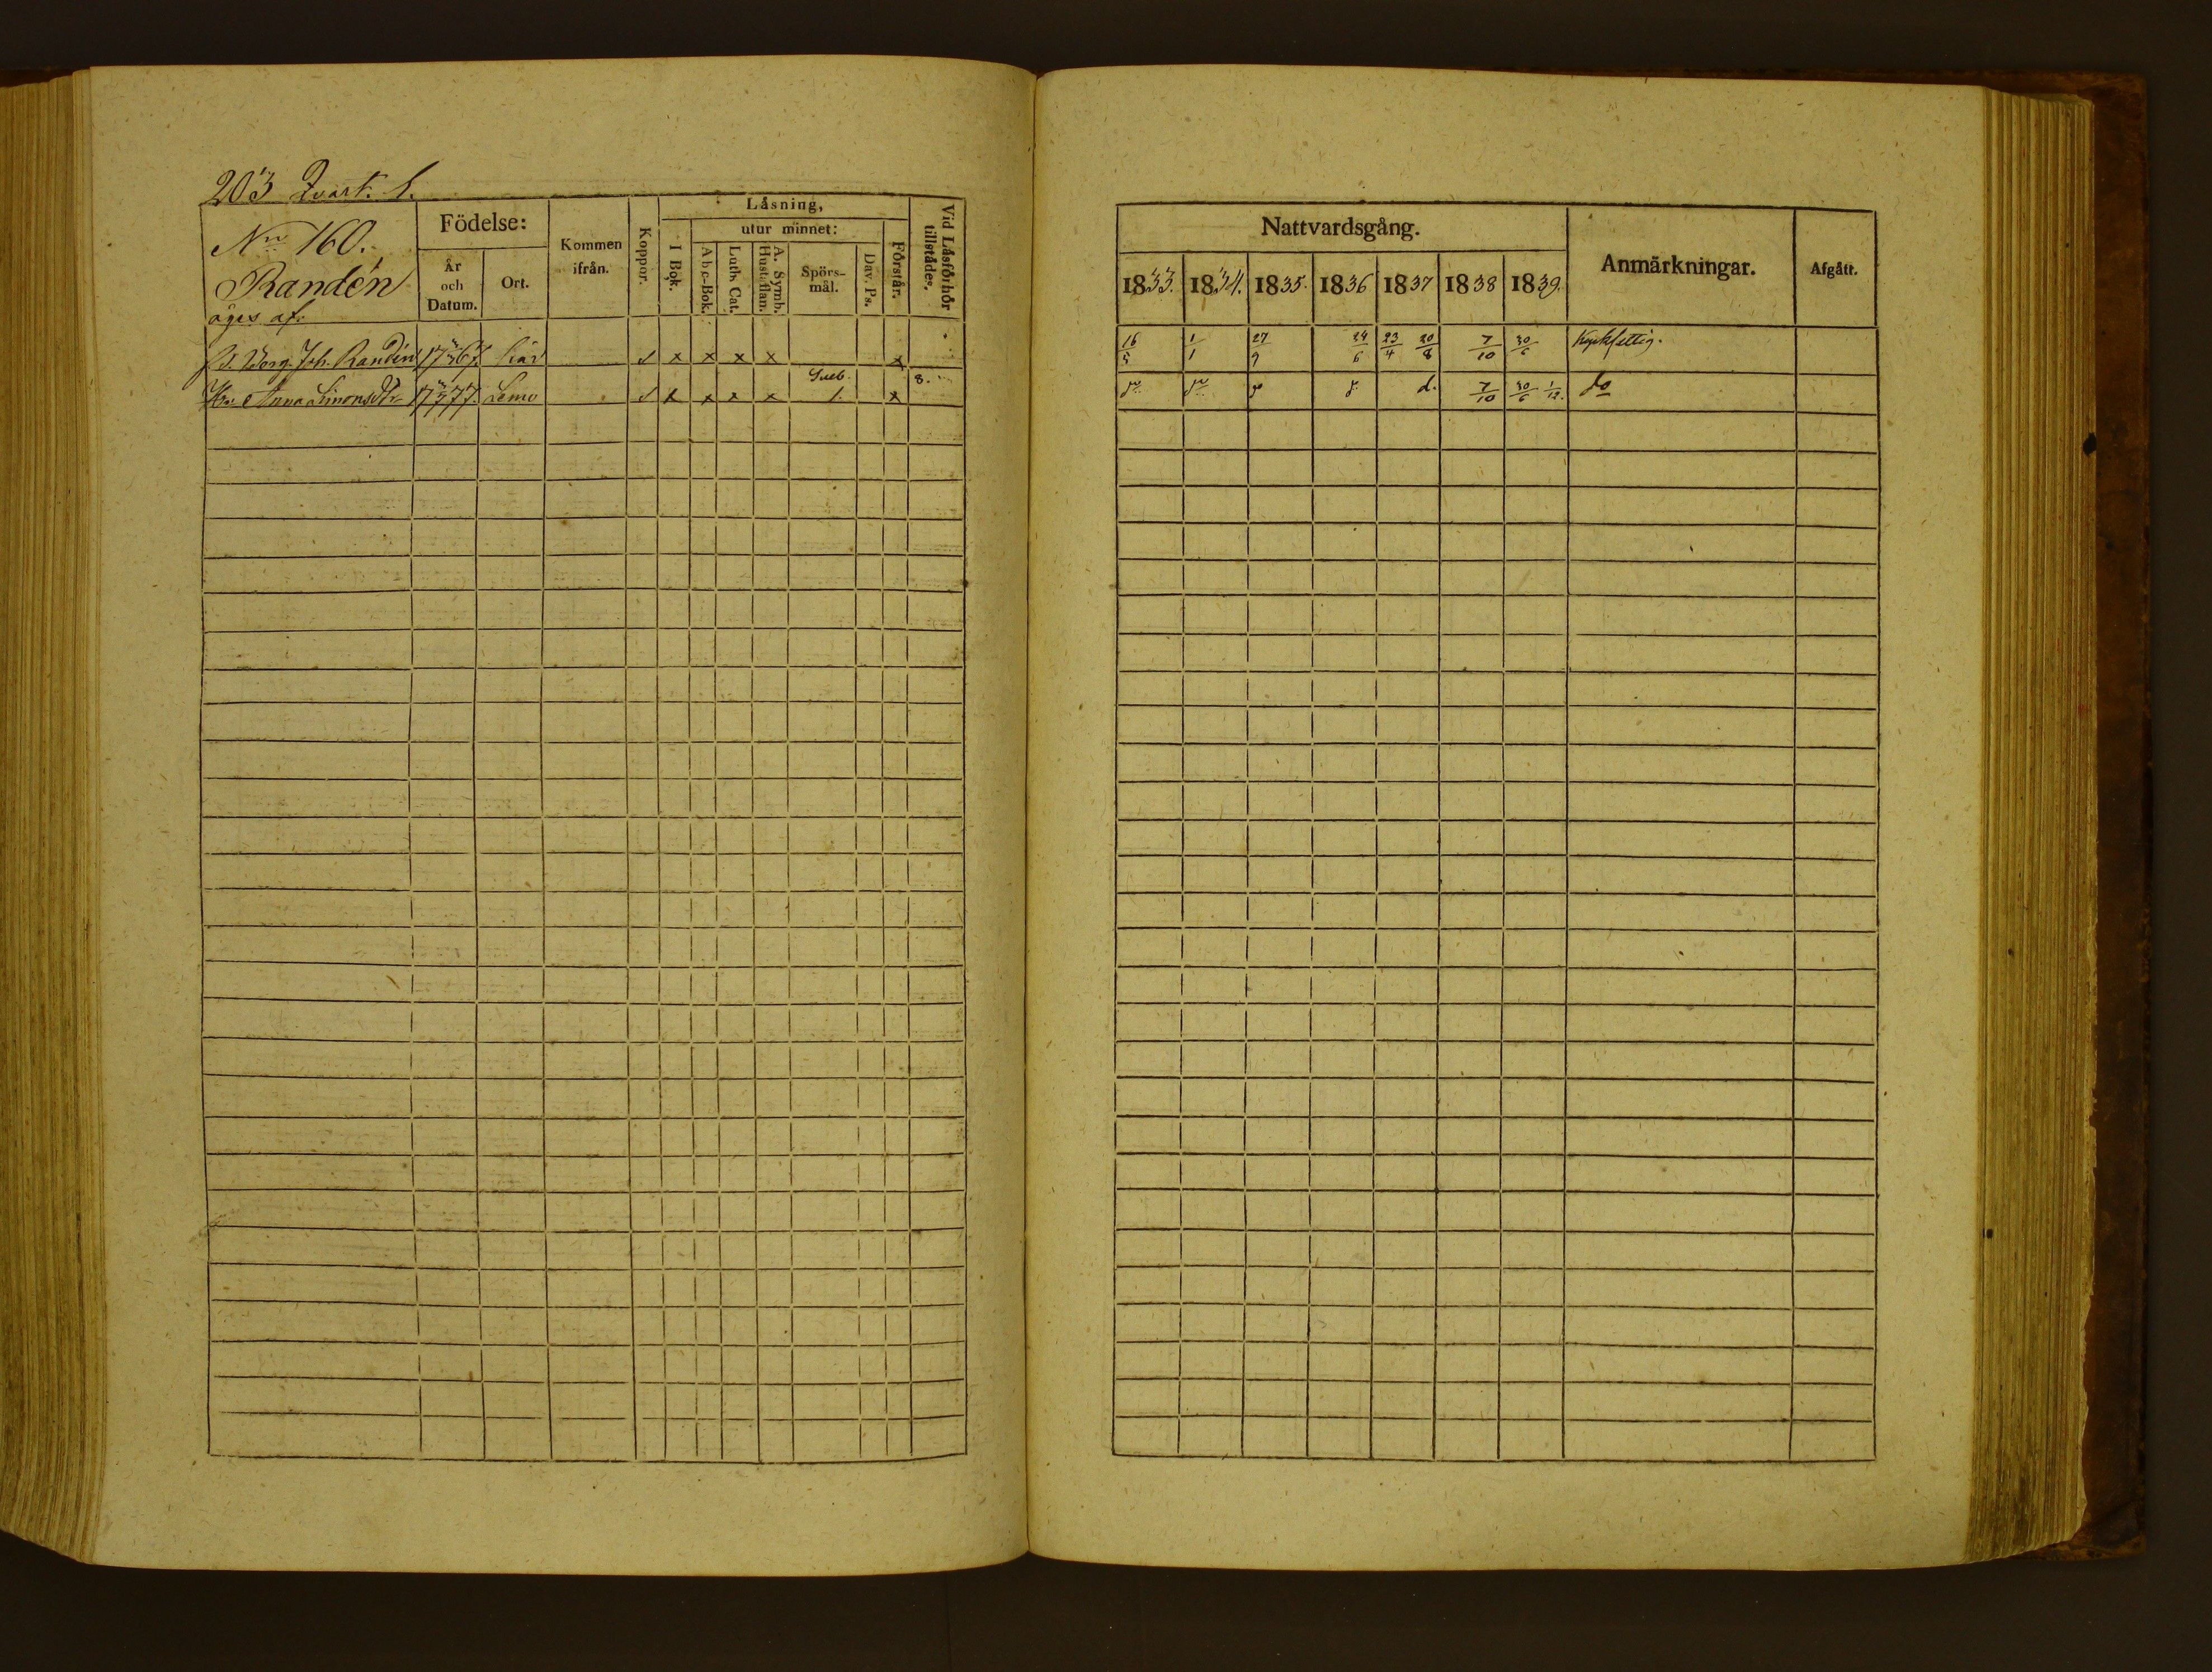 203 Qvart. 1.
No 160.
Randén
äges af:
Födelse:
År och Datum.
Ort.
Kommen ifrån.
Koppor.
Låsning,
I Bok.
utur minnet:
Abc-Bok.
Luth. Cat.
A. Symb. Hustaflan.
Spörs-mål.
Dav. Ps.
Förstår.
Vid Låsförhör tillstådes.
Borg. Joh. Randén 1767. här x x x x x
Hu. Anna Simonsdr 1777. Lemo x x x x 1. x 8.
Nattvardsgång.
1833. 1834. 1835. 1836 1837 1838 1839.
Anmärkningar.
Afgått.
16/5 1/1 27/9 24/6 23/4 20/8 7/10 30/6 Kyrkfattig.
do do d. 7/10 30/6 1/12. do